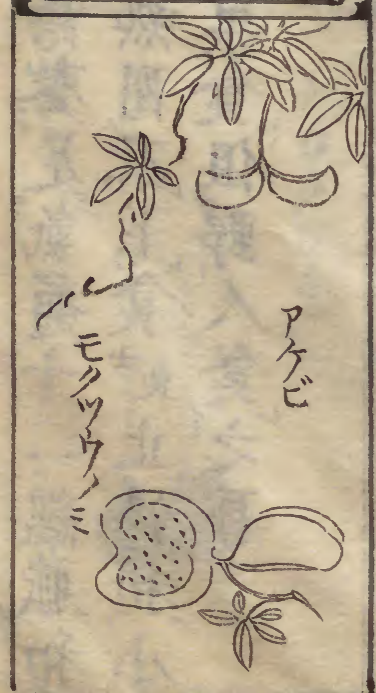 アケビ
モクツウノミ